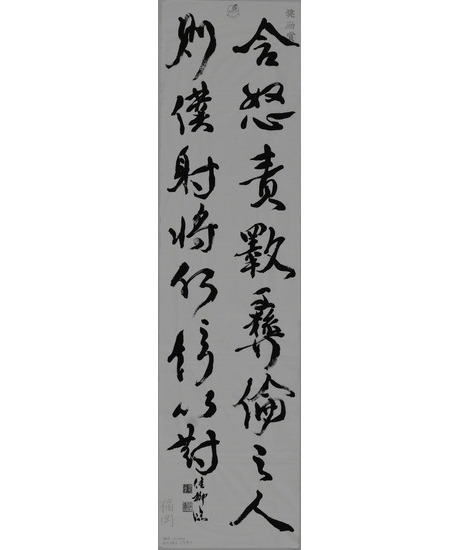 奬励賞
含怒責斁彝倫之人
則僕射將何辞以對
佳柳臨